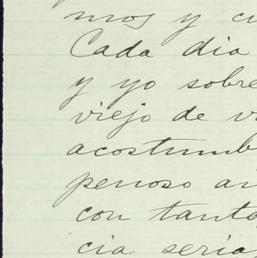 mos y cu
Cada dia
y yo sobre
viejo de v
acostumb
penoso an
con tanto
cia seria